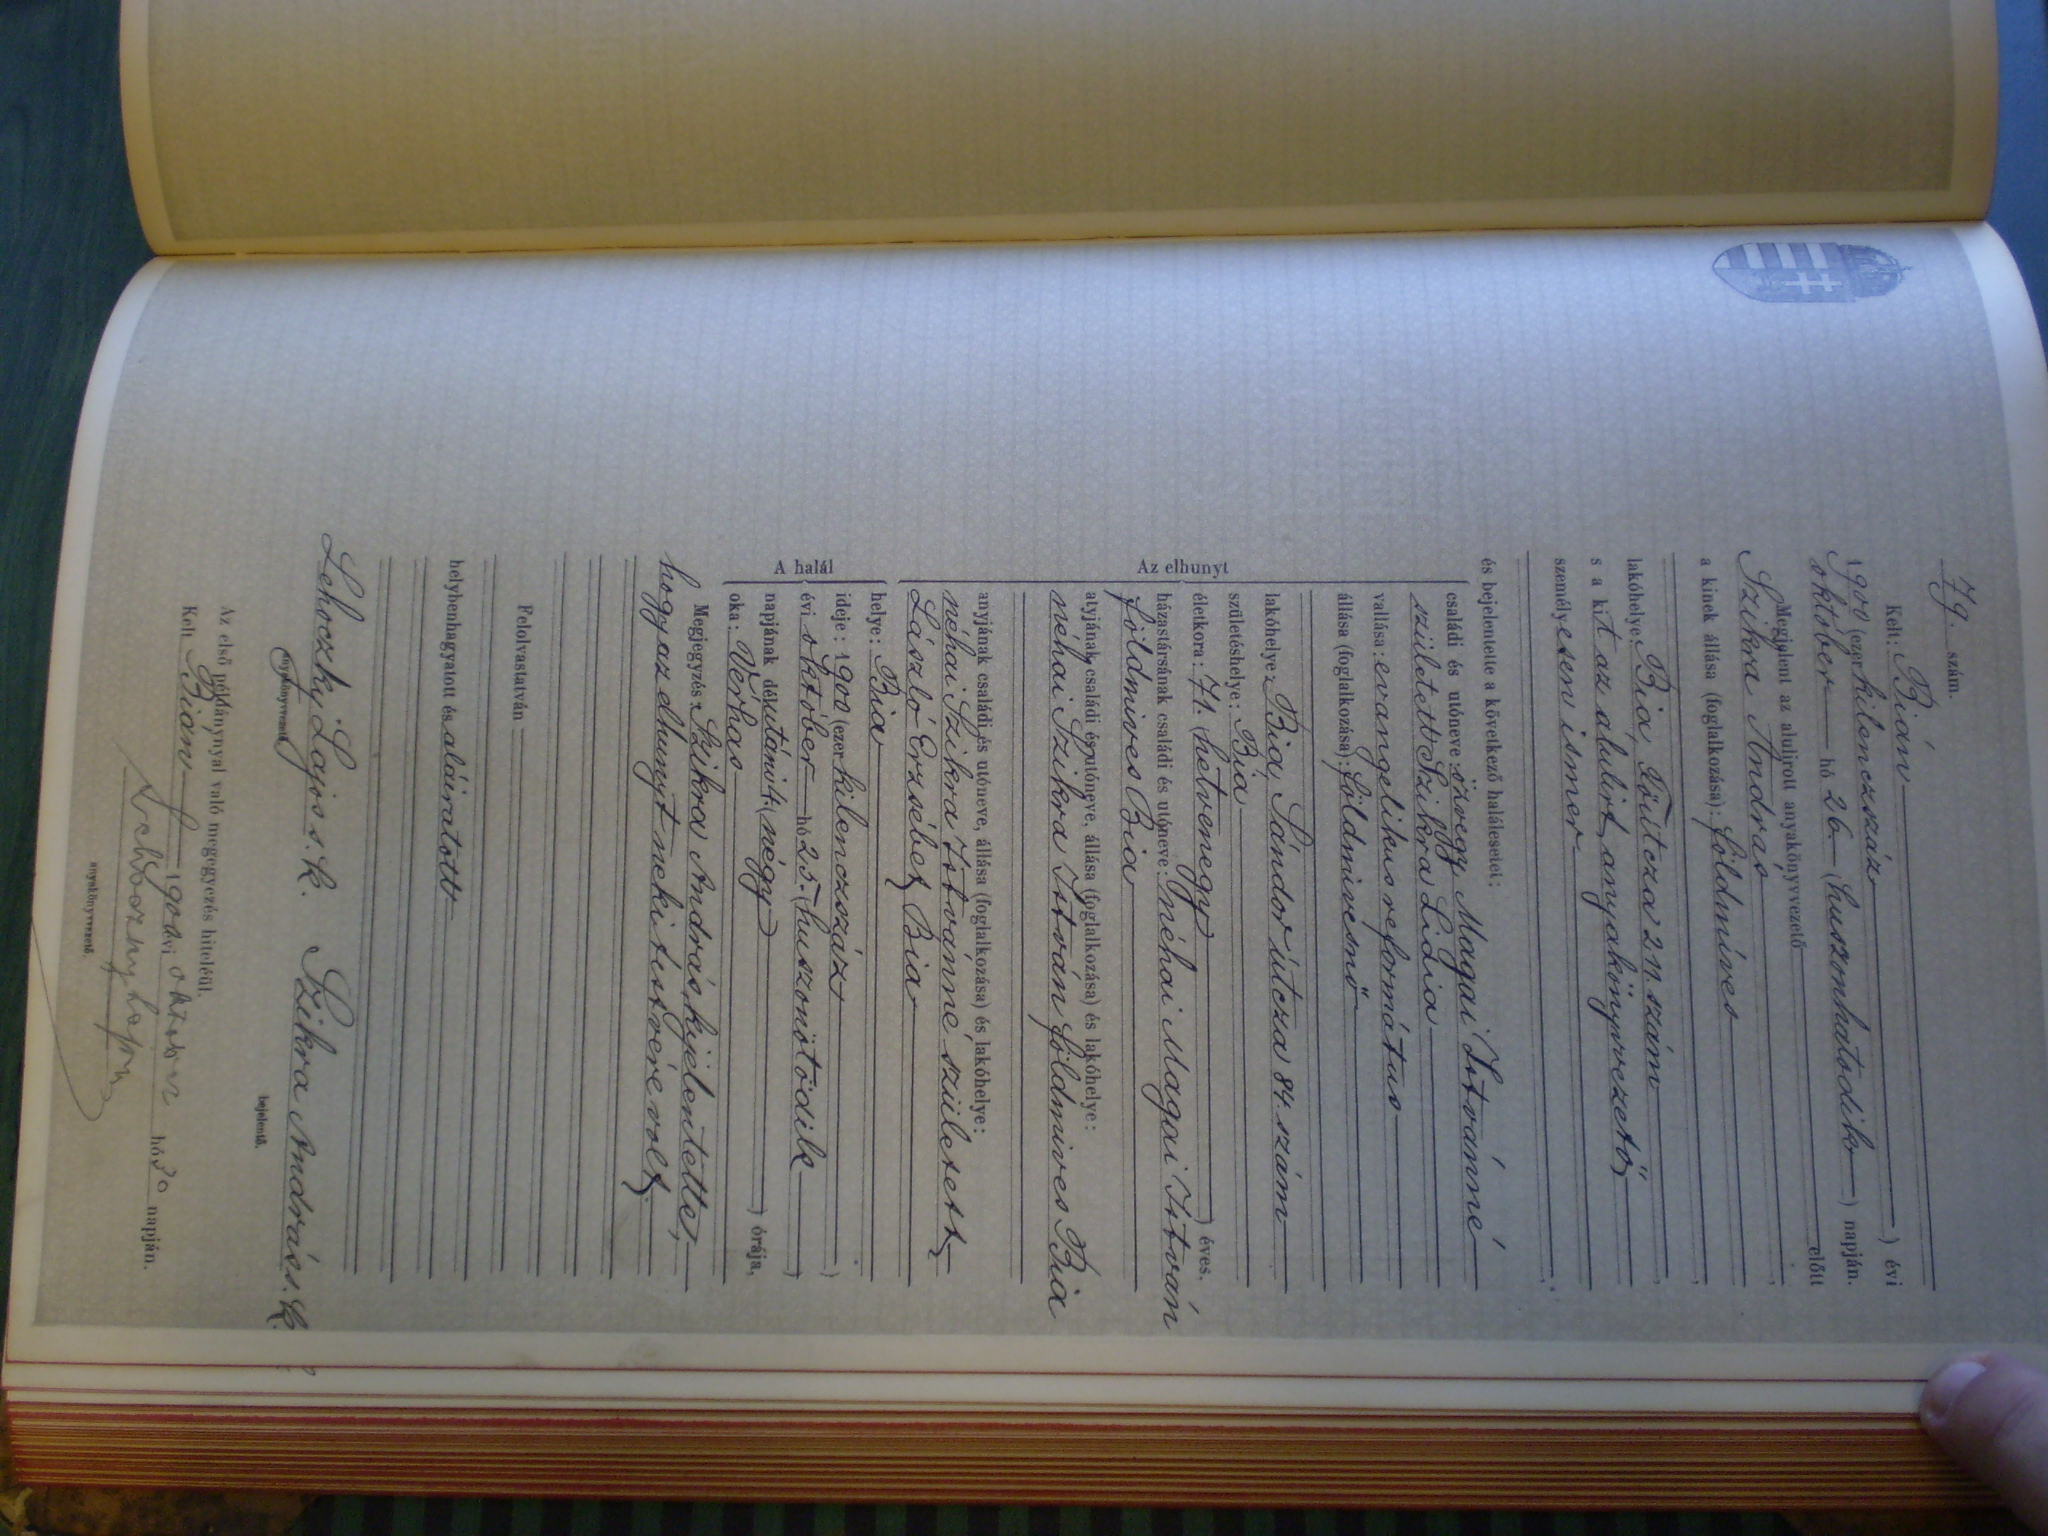 79. szám.
Kelt: Bián
1900 (ezer kilenczszáz ) évi
október hó 26. (huszonhatodik ) napján.
Megjelent az alulirott anyakönyvvezető előtt
Szikra András
a kinek állása (foglalkozása): földmíves
lakóhelye: Bia, Főútcza 211. szám
s a kit az alulirt anyakönyvvezető
személyesen ismer
és bejelentette a következő halálesetet:
Az elhunyt
családi és utóneve: özvegy Magai Istvánné
született Szikra Lidia
vallása: evangelikus református
állása (foglalkozása): földmívesnő
lakóhelye: Bia, Sándor útcza 84. szám
születéshelye: Bia
életkora: 71. (hetvenegy ) éves.
házastársának családi és utóneve: néhai Magai István
földmives Bia
atyjának családi és utóneve, állása (foglalkozása) és lakóhelye:
néhai Szikra István földmives Bia
anyjának családi és utóneve, állása (foglalkozása) és lakóhelye:
néhai Szikra Istvánné született
László Erzsébet, Bia
A halál
helye: Bia
ideje: 1900 (ezer kilenczszáz )
évi október hó 25. (huszonötödik )
napjának délutáni 4. (négy ) órája,
oka: Vérhas
Megjegyzés: Szikra András kijelentette,
hogy az elhunyt neki testvére volt.
Felolvastatván
helybenhagyatott és aláiratott
Lehoczky Lajos s. k. Szikra András s. k.
anyakönyvvezető. bejelentő.
Az első példánynyal való megegyezés hiteléül.
Kelt Bián 1900 évi október hó 30 napján.
anyakönyvvezető.